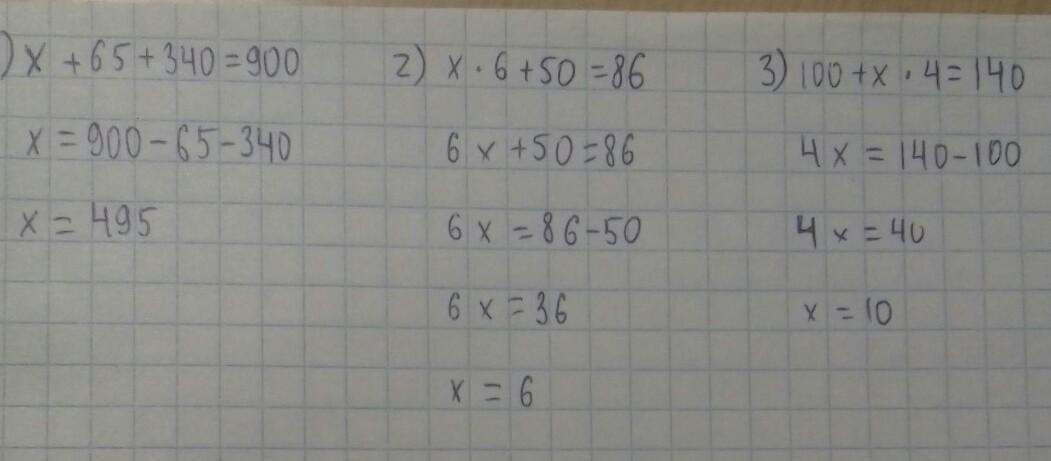 ) x + 65 + 340 = 900
x = 900 - 65 - 340
x = 495
2) x · 6 + 50 = 86
6 x + 50 = 86
6 x = 86 - 50
6 x = 36
x = 6
3) 100 + x · 4 = 140
4 x = 140 - 100
4 x = 40
x = 10